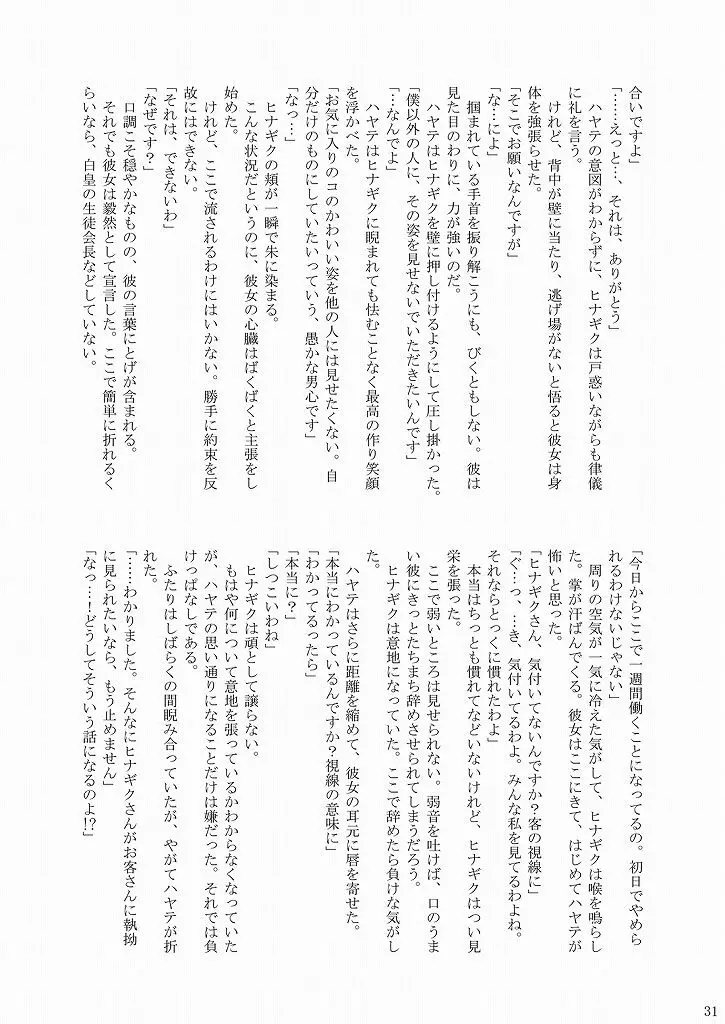 合いですよ」
「……えっと…、それは、ありがとう」
　ハヤテの意図がわからずに、ヒナギクは戸惑いながらも律儀
に礼を言う。
　けれど、背中が壁に当たり、逃げ場がないと悟ると彼女は身
体を強張らせた。
「そこでお願いなんですが」
「な…によ」
　掴まれている手首を振り解こうにも、びくともしない。彼は
見た目のわりに、力が強いのだ。
　ハヤテはヒナギクを壁に押し付けるようにして圧し掛かった。
「僕以外の人に、その姿を見せないでいただきたいんです」
「…なんでよ」
　ハヤテはヒナギクに睨まれても怯むことなく最高の作り笑顔
を浮かべた。
「お気に入りのコのかわいい姿を他の人には見せたくない。自
分だけのものにしていたいっていう、愚かな男心です」
「なっ…」
　ヒナギクの頬が一瞬で朱に染まる。
　こんな状況だというのに、彼女の心臓はばくばくと主張をし
始めた。
　けれど、ここで流されるわけにはいかない。勝手に約束を反
故にはできない。
「それは、できないわ」
「なぜです？」
　口調こそ穏やかなものの、彼の言葉にとげが含まれる。
　それでも彼女は毅然として宣言した。ここで簡単に折れるく
らいなら、白皇の生徒会長などしていない。
「今日からここで一週間働くことになってるの。初日でやめら
れるわけないじゃない」
　周りの空気が一気に冷えた気がして、ヒナギクは喉を鳴らし
た。掌が汗ばんでくる。彼女はここにきて、はじめてハヤテが
怖いと思った。
「ヒナギクさん、気付いてないんですか？客の視線に」
「ぐ…っ、…き、気付いてるわよ。みんな私を見てるわよね。
それならとっくに慣れたわよ」
　本当はちっとも慣れてなどいないけれど、ヒナギクはつい見
栄を張った。
　ここで弱いところは見せられない。弱音を吐けば、口のうま
い彼にきっとたちまち辞めさせられてしまうだろう。
　ヒナギクは意地になっていた。ここで辞めたら負けな気がし
た。
　ハヤテはさらに距離を縮めて、彼女の耳元に唇を寄せた。
「本当にわかっているんですか？視線の意味に」
「わかってるったら」
「本当に？」
「しつこいわね」
　ヒナギクは頑として譲らない。
　もはや何について意地を張っているかわからなくなっていた
が、ハヤテの思い通りになることだけは嫌だった。それでは負
けっぱなしである。
　ふたりはしばらくの間睨み合っていたが、やがてハヤテが折
れた。
「……わかりました。そんなにヒナギクさんがお客さんに執拗
に見られたいなら、もう止めません」
「なっ…！どうしてそういう話になるのよ!?」
31